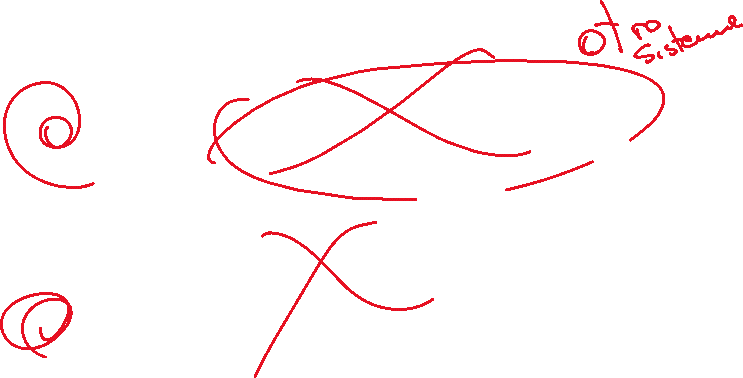 otro
Sistema